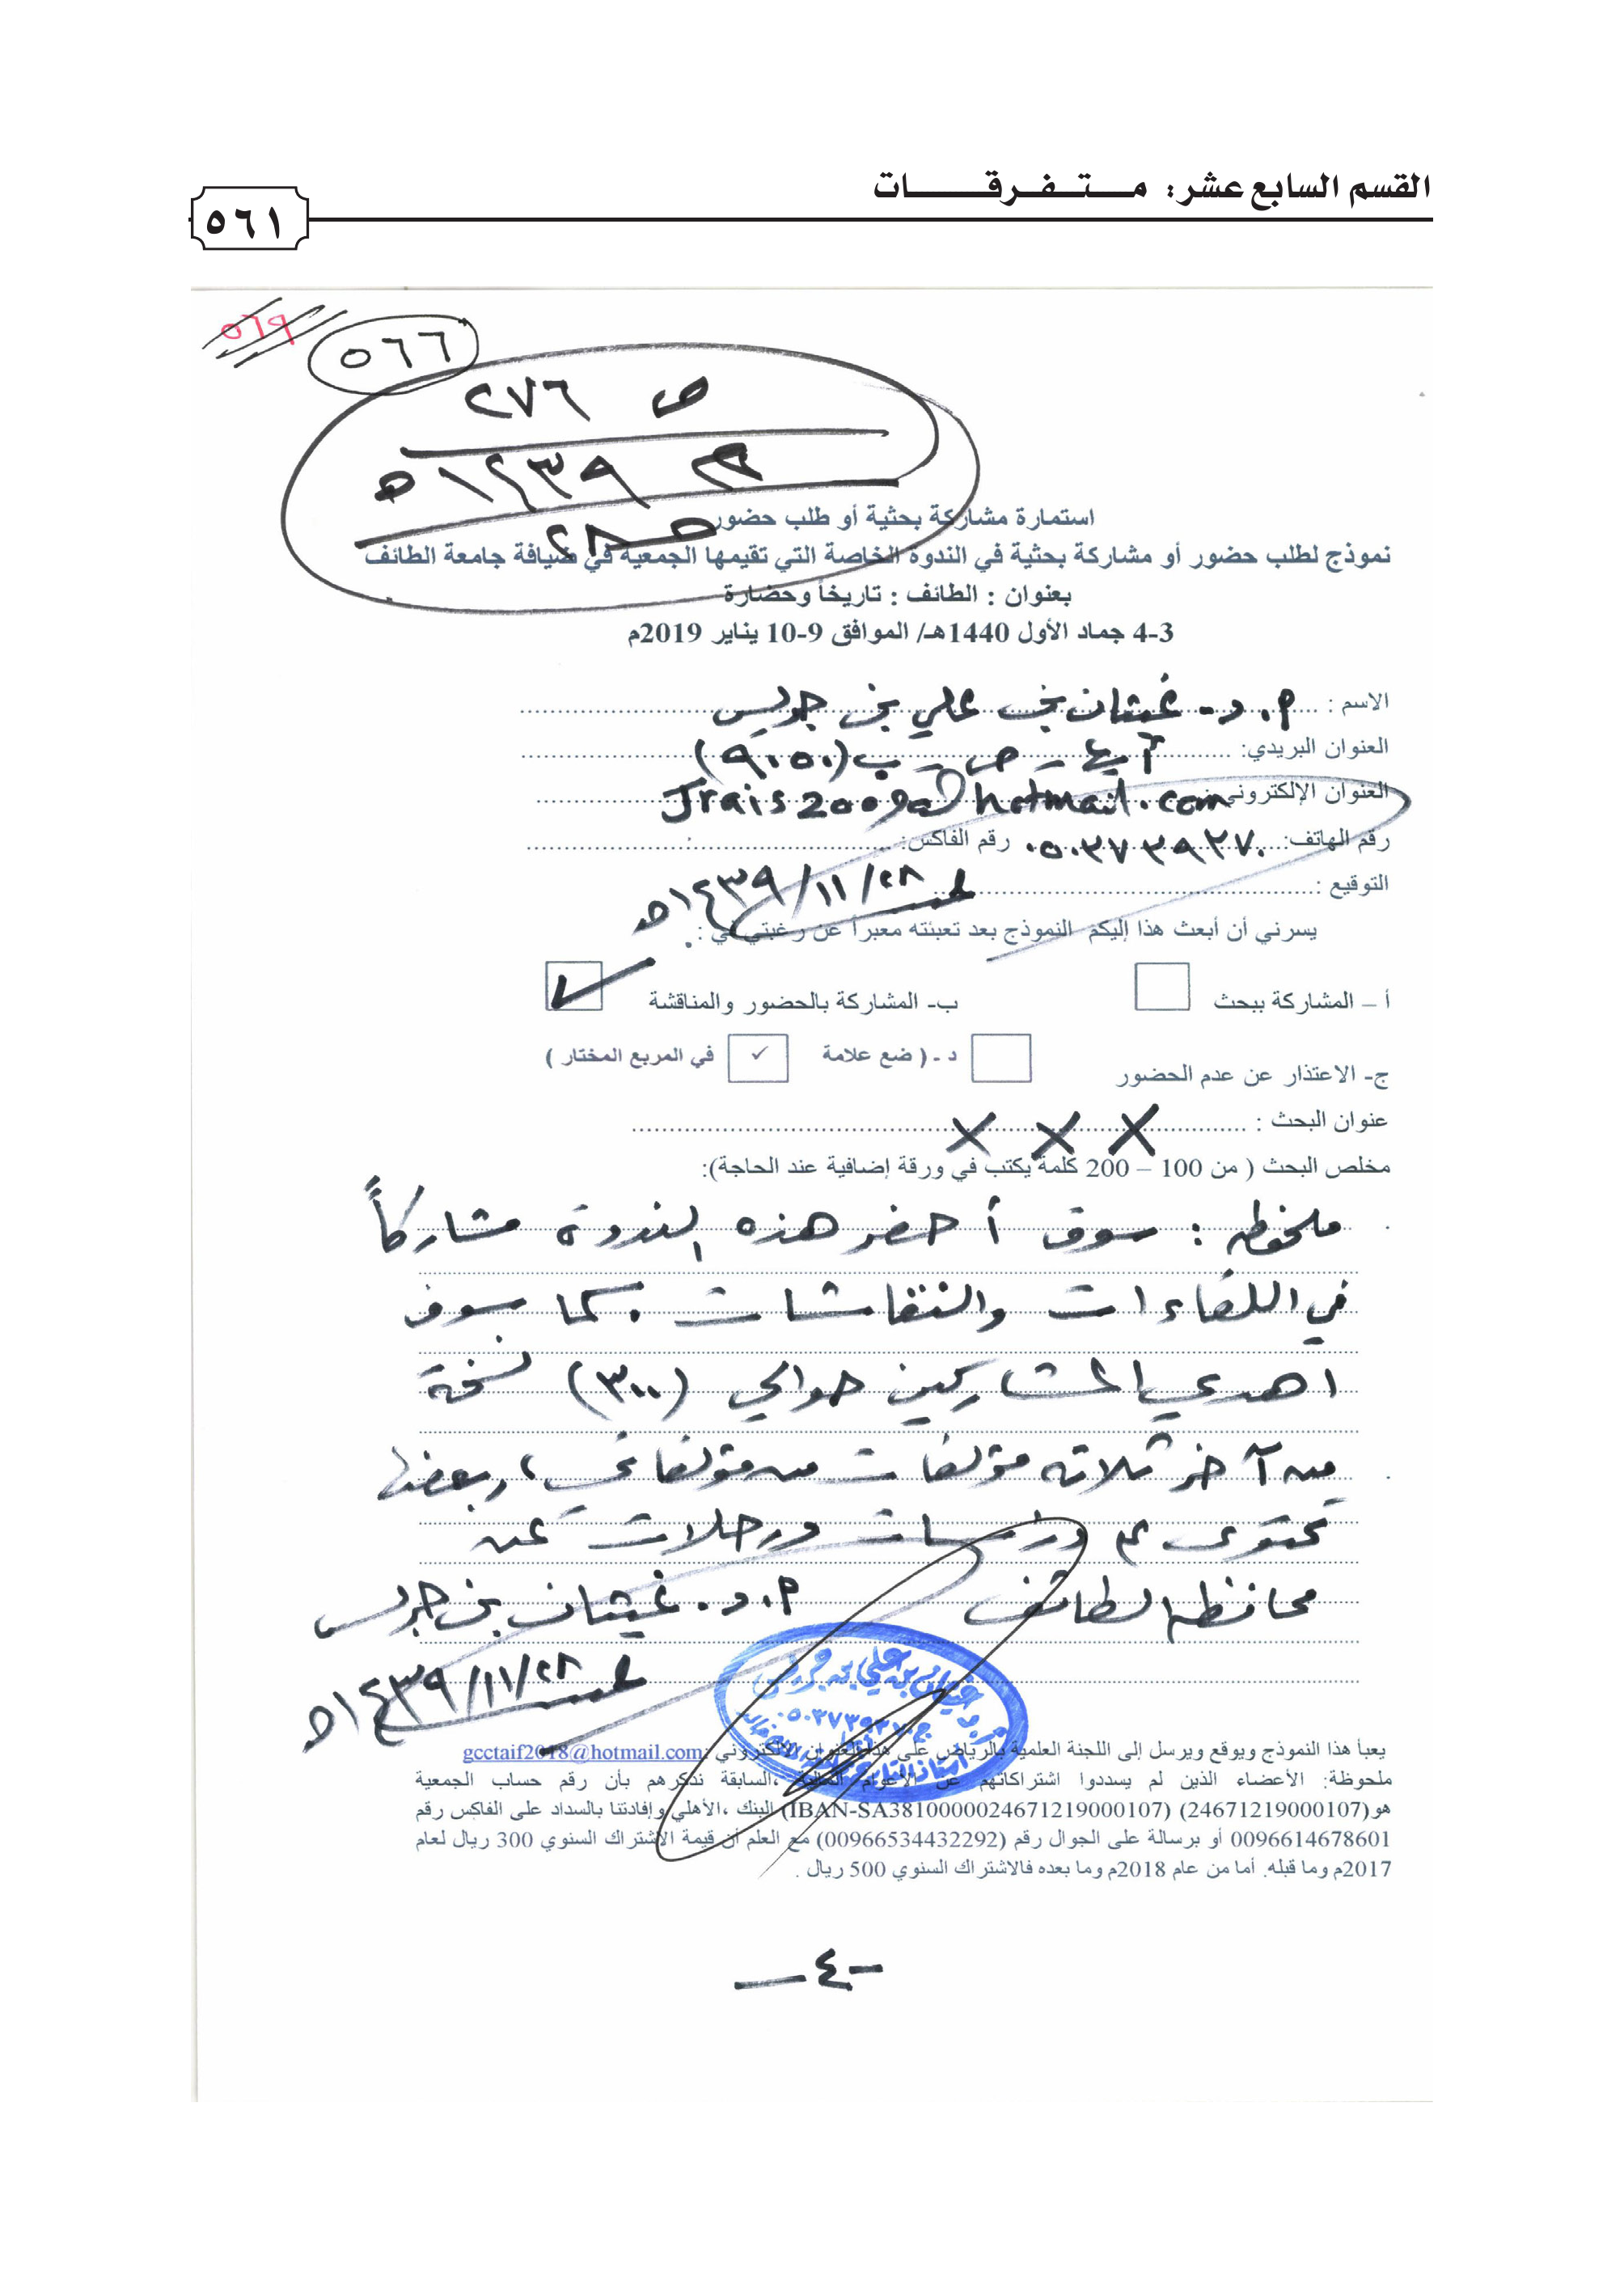 القسم السابع عشر: متفرقات
٥٦١
٥٦٩
٥٦٦
ص ٢٧٦
١٤٣٩هـ
استمارة مشاركة بحثية أو طلب حضور
نموذج لطلب حضور أو مشاركة بحثية في الندوة الخاصة التي تقيمها الجمعية في ضيافة جامعة الطائف
بعنوان : الطائف : تاريخاً وحضارة
3-4 جماد الأول 1440هـ/ الموافق 9-10 يناير 2019م
الاسم : أ.د- غيثان بن علي بن جريس
العنوان البريدي: أبها - ص - ب (٩٠٥٠)
العنوان الإلكتروني: Jrais2009@hotmail.com
رقم الهاتف: ٠٥٠٣٧٣٩٣٧٠ رقم الفاكس:
التوقيع : ٢٨/١١/١٤٣٩هـ
يسرني أن أبعث هذا إليكم النموذج بعد تعبئته معبراً عن رغبتي في :
أ – المشاركة ببحث ب- المشاركة بالحضور والمناقشة ✓
ج- الاعتذار عن عدم الحضور د - ( ضع علامة ✓ في المربع المختار )
عنوان البحث : X X X
مخلص البحث ( من 100 – 200 كلمة يكتب في ورقة إضافية عند الحاجة):
ملحوظة : سوف أحضر هذه الندوة مشاركاً
في اللقاءات والنقاشات . كما سوف
اهدي المشاركين حوالي (٣٠٠) نسخة
من آخر ثلاثة مؤلفات من مؤلفاتي ، بعضها
تحتوى على دراسات ورحلات عن
محافظة الطائف أ.د. غيثان بن جريس
٢٨/١١/١٤٣٩هـ
أ.د غيثان بن علي بن جريس
ج ٠٥٠٣٧٣٩٣٧٠
يعبأ هذا النموذج ويوقع ويرسل إلى اللجنة العلمية بالرياض على هذا العنوان الالكتروني :gcctaif2018@hotmail.com
ملحوظة: الأعضاء الذين لم يسددوا اشتراكاتهم عن الأعوام المالية ،السابقة نذكرهم بأن رقم حساب الجمعية
هو(24671219000107) (IBAN-SA3810000024671219000107) البنك ،الأهلي وإفادتنا بالسداد على الفاكس رقم
0096614678601 أو برسالة على الجوال رقم (00966534432292) مع العلم أن قيمة الاشتراك السنوي 300 ريال لعام
2017م وما قبله. أما من عام 2018م وما بعده فالاشتراك السنوي 500 ريال .
-٤-